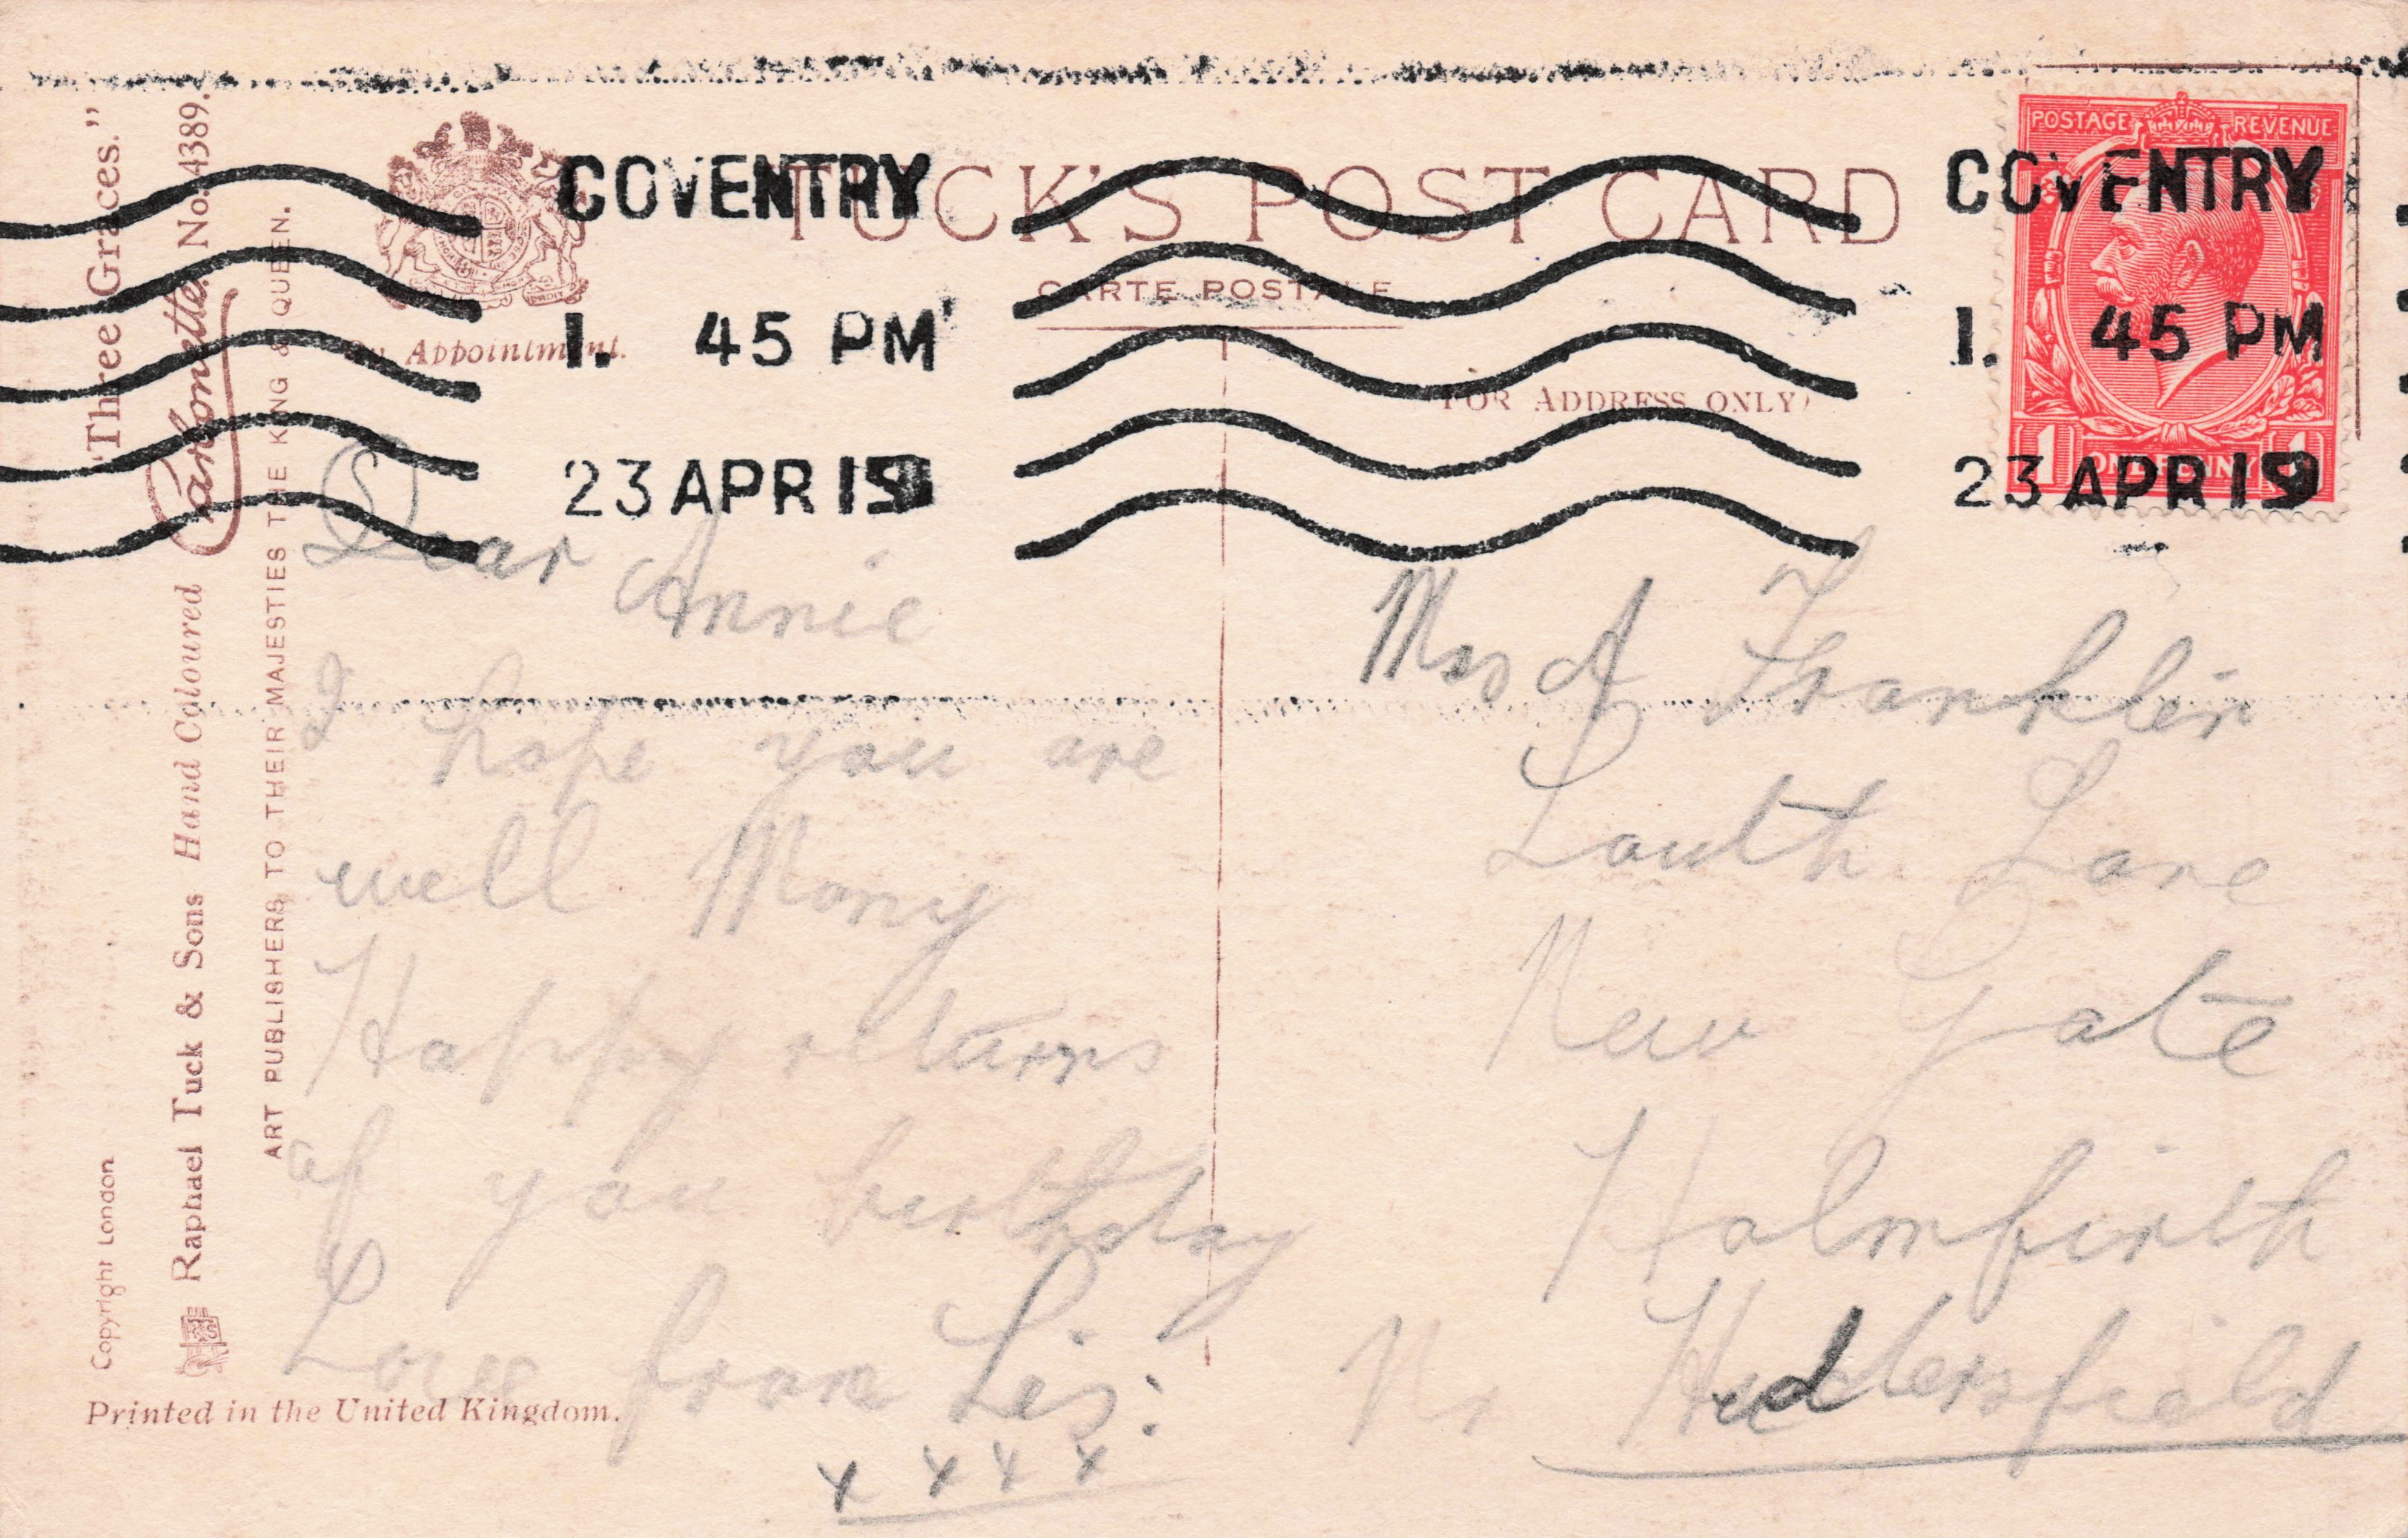 "Three Graces."
Carbonette. No. 4389.
Raphael Tuck & Sons Hand Coloured
ART PUBLISHERS TO THEIR MAJESTIES THE KING & QUEEN.
Copyright London
Printed in the United Kingdom.
By Appointment.
TUCK'S POST CARD
CARTE POSTALE
(FOR ADDRESS ONLY)
COVENTRY
1. 45 PM
23 APR 19
COVENTRY
1. 45 PM
23 APR 19
POSTAGE REVENUE
1 ONE PENNY 1
S
Dear Annie
I hope you are
well Many
Happy returns
of you birthday
Love from Lis:
x x x x
A Franklin
South Lane
New Gate
Holmfirth
Nr Huddersfield